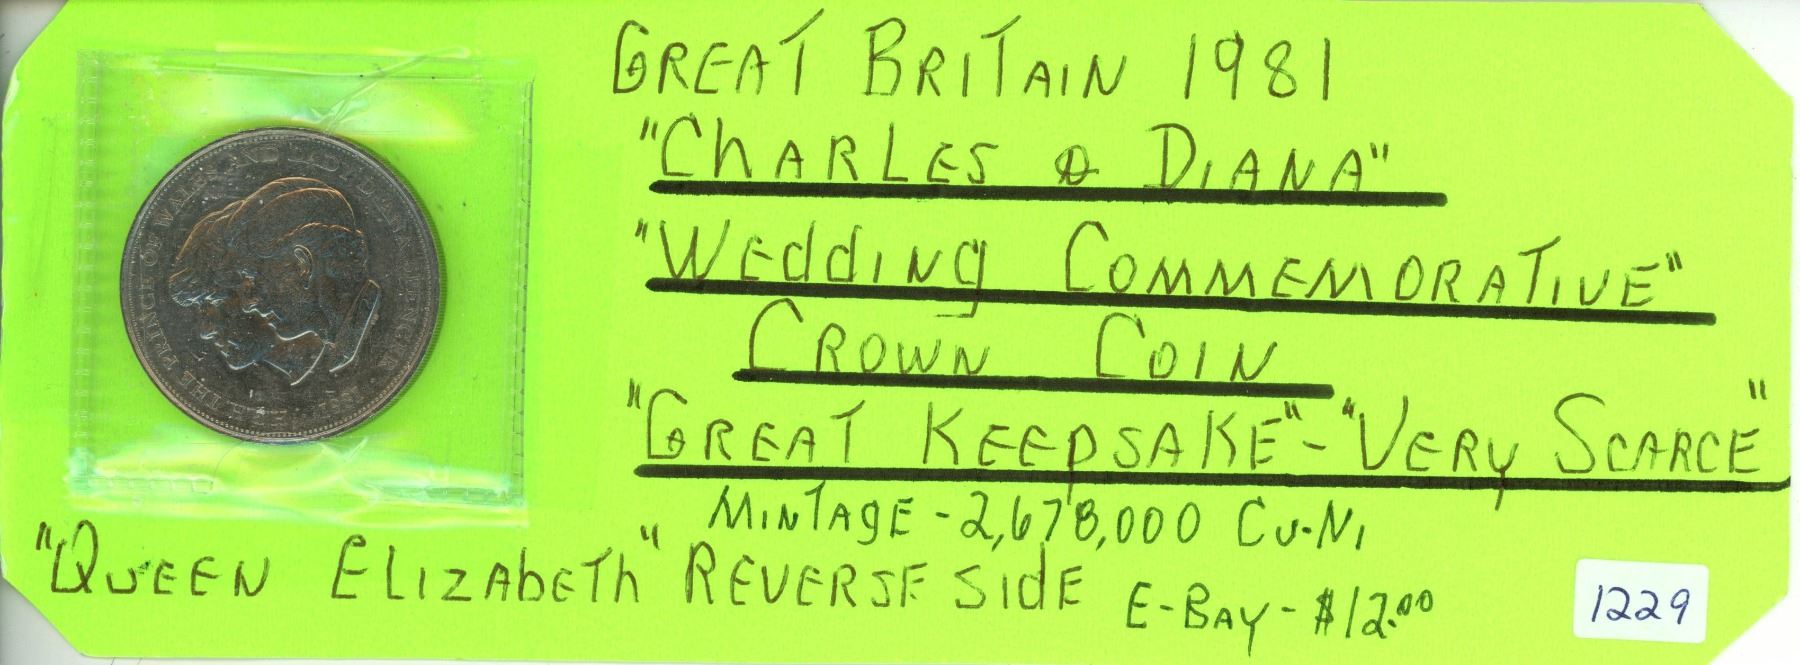 GREAT BRITAIN 1981
"CHARLES & DIANA"
"WEddING COMMEMORATIVE"
CROWN COIN
"GREAT KEEPSAKE"-"VERY SCARCE"
MINTAGE - 2,678,000 Cu-Ni
"QUEEN ELIZAbETh" REVERSE SIdE
E-BAY - $12.00
1229
THE PRINCE OF WALES AND LADY DIANA SPENCER 1981